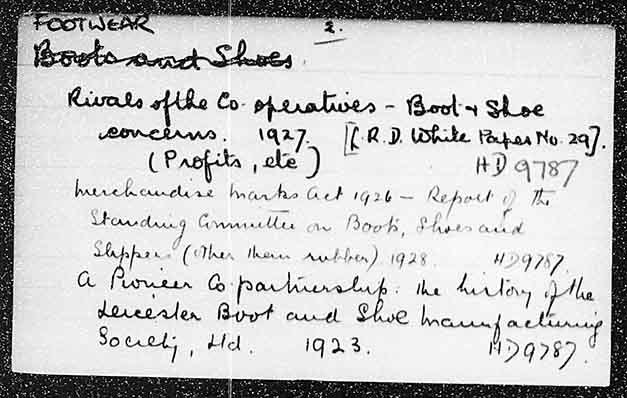 FOOTWEAR 2.
Boots and Shoes.
Rivals of the Co-operatives – Boot & Shoe
concerns. 1927. [L.R.D. White Paper No. 29].
(Profits, etc) HD 9787
Merchandise Marks Act 1926 – Report of the
Standing Committee on Boots, Shoes and
Slippers (other than rubber) 1928. HD9787.
A Pioneer Co-partnership: the history of the
Leicester Boot and Shoe Manufacturing
Society, Ltd. 1923. HD9787.